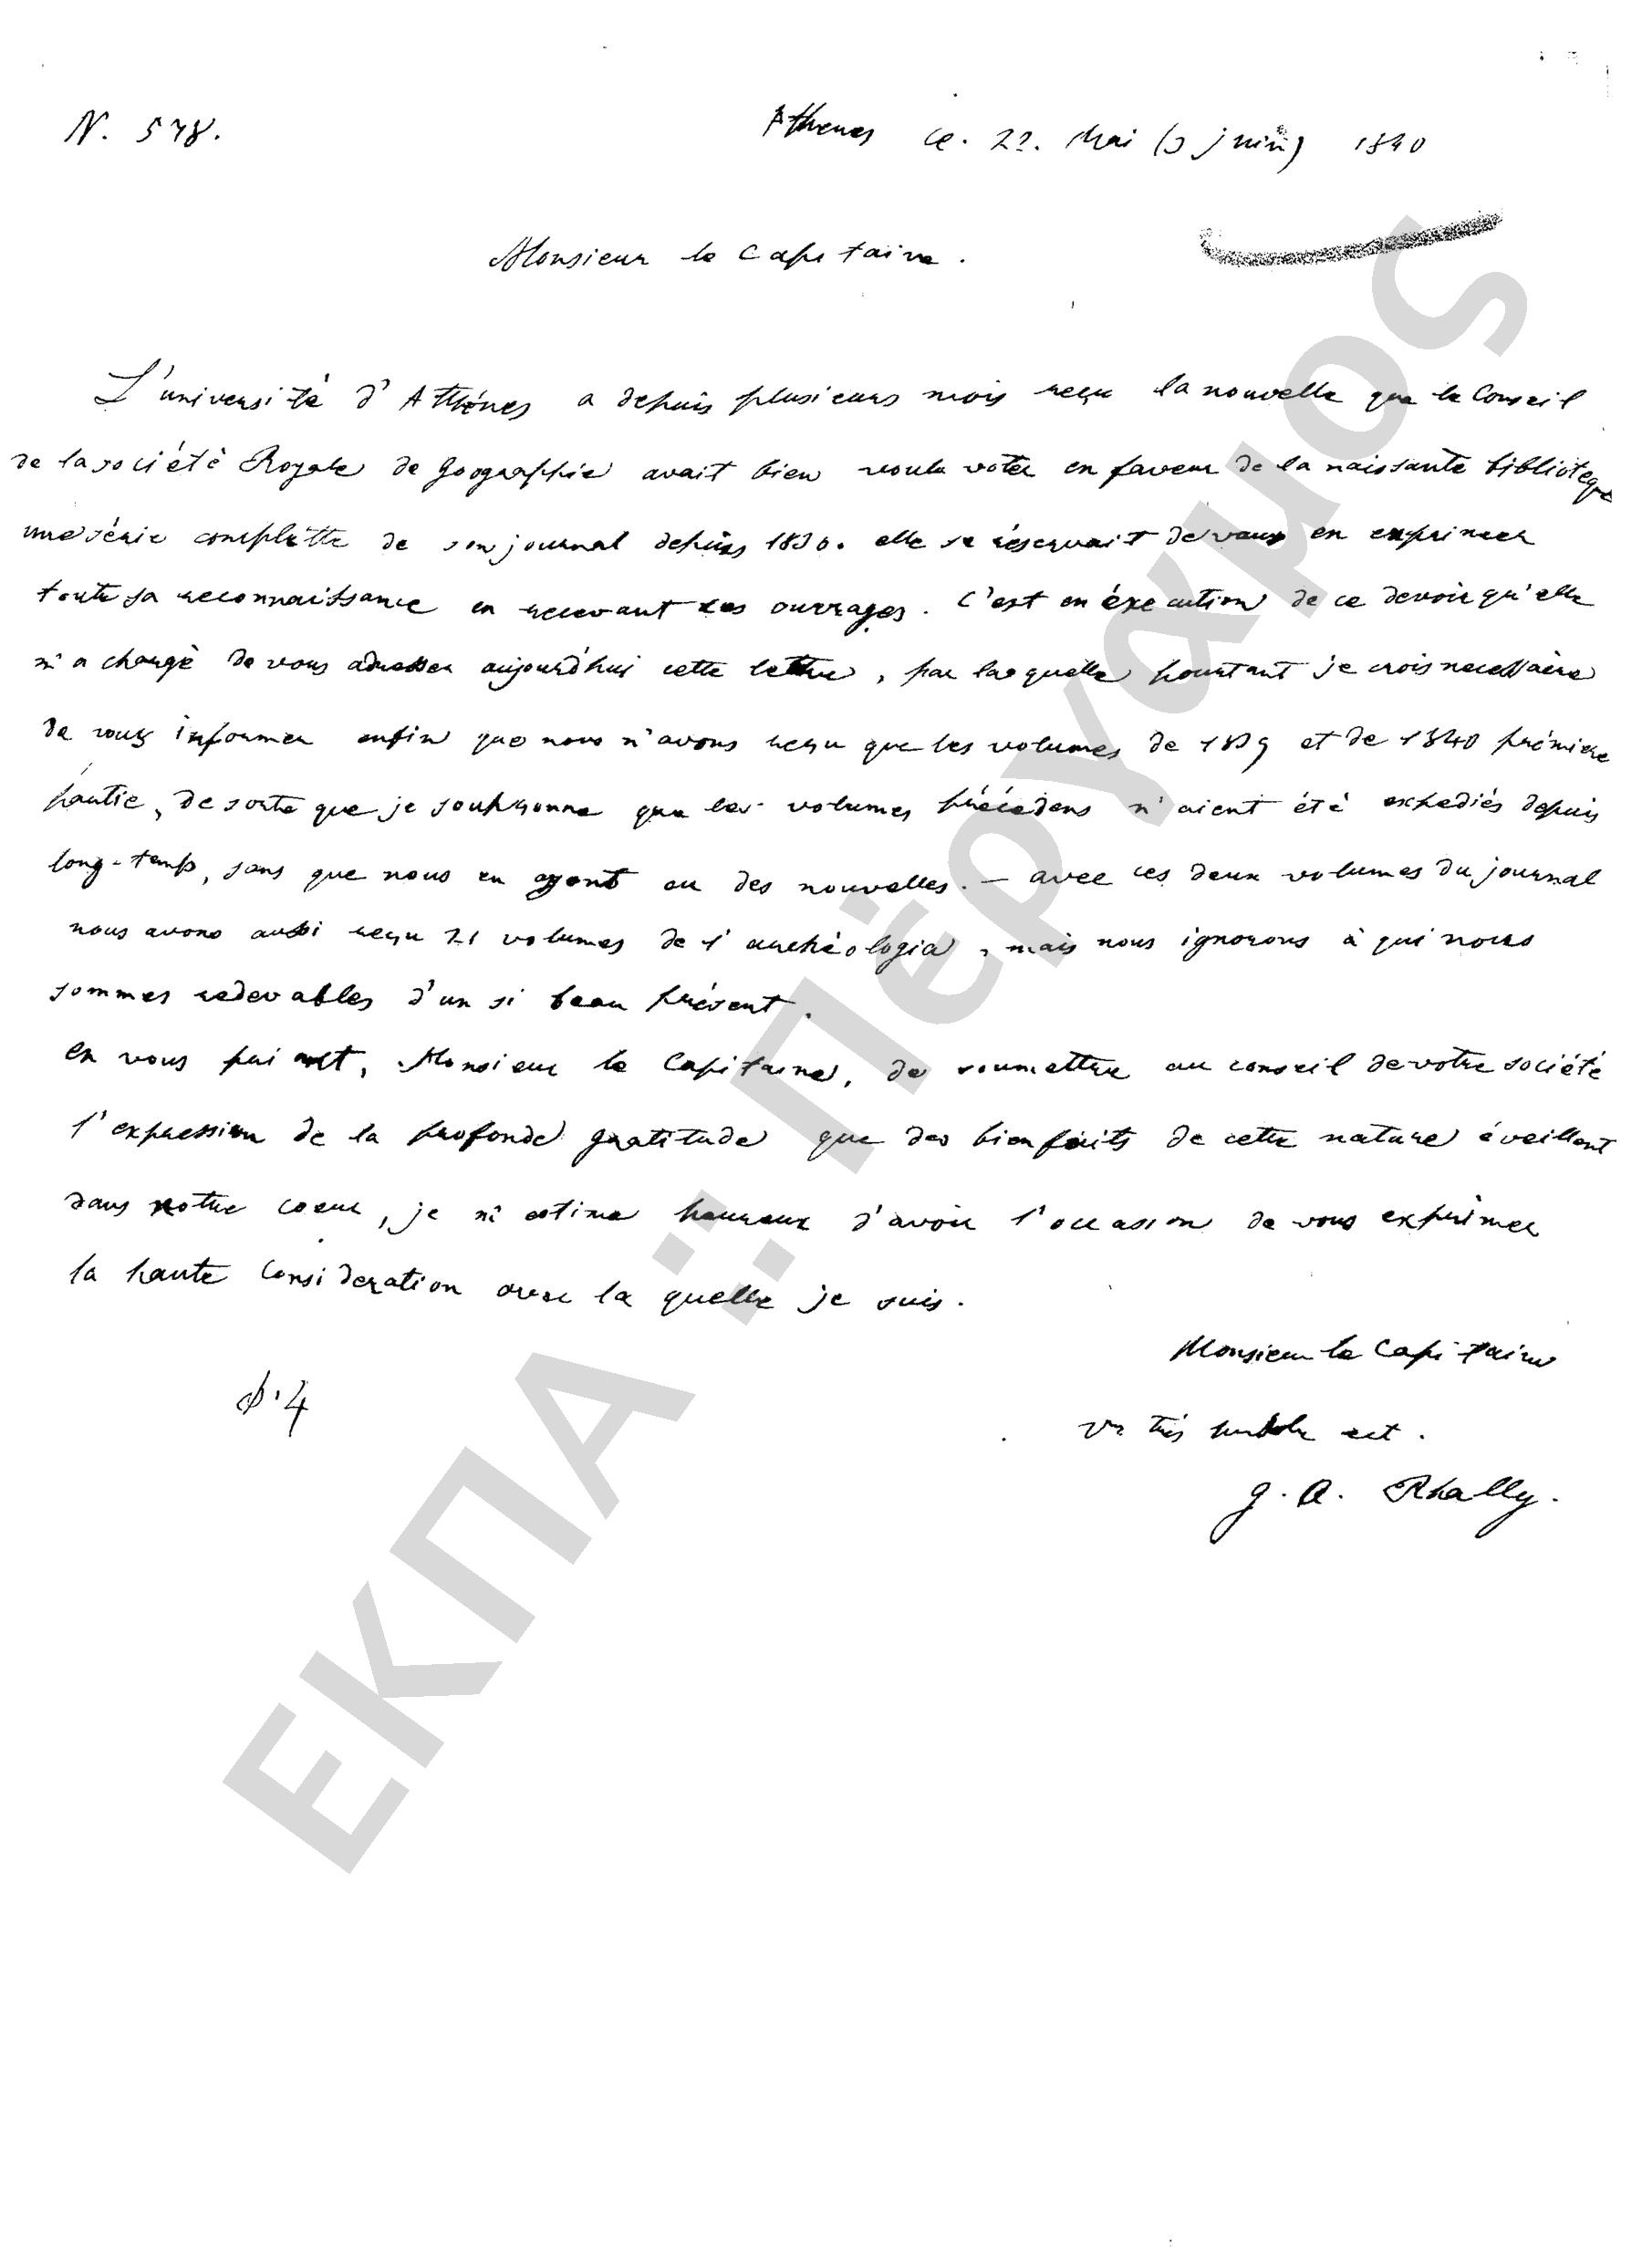 N. 578.
Athenes ce. 22. Mai (3 juin) 1840
Monsieur le Capitaine.
L'université d'Athénes a depuis plusieurs mois reçu la nouvelle que le Conseil
de la société Royale de Geographie avait bien voulu voter en faveur de la naissante biblioteque
une série complette de son journal depuis 1830. elle se réservait de vous en exprimer
toute sa reconnaissance en recevant ces ouvrages. C'est en éxecution de ce devoir qu'elle
m'a chargé de vous adresser aujourd'hui cette lettre, par laquelle pourtant je crois necessaire
de vous informer enfin que nous n'avons reçu que les volumes de 1839 et de 1840 prémiere
partie, de sorte que je soupçonne que les volumes précédens n'aient été expediés depuis
long-temp, sans que nous en ayons eu des nouvelles. — avec ces deux volumes du journal
nous avons aussi reçu 21 volumes de l'archéologia, mais nous ignorons à qui nous
sommes redevables d'un si beau présent.
en vous priant, Monsieur le Capitaine, de soumettre au conseil de votre société
l'expression de la profonde gratitude que des bienfaits de cette nature éveillent
dans notre coeur, je m'estime heureux d'avoir l'occasion de vous exprimer
la haute Consideration avec la quelle je suis.
Monsieur le Capitaine
φ.4
vr. trés humble ect.
g. A. Rhally.
ΕΚΠΑ :: Πέργαμος